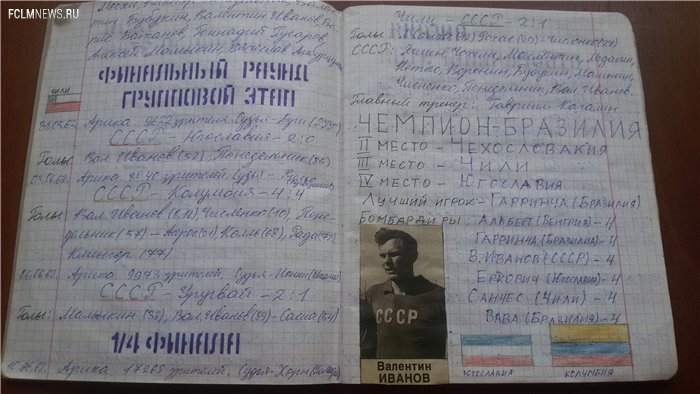 FCLMNEWS.RU
тин Бубукин, Валентин Иванов,
рис Батанов, Геннадий Гусаров,
ФИНАЛЬНЫЙ РАУНД
ГРУППОВОЙ ЭТАП
ЧИЛИ
31.05.62 Арика. 9622 зрителя. Судья-
СССР - Югославия - 2:0
Голы: Вал. Иванов (52), Понедельник (85)
03.06.62 Арика. 8040 зрителей. Судья-
СССР - Колумбия - 4:4
Голы: Вал. Иванов (8,12), Численко (10), Поне-
дельник (57) - Асерос (21), Колль (68), Рада (77),
Клингер (77)
06.06.62 Арика. 9973 зрителя. Судья-
СССР - Уругвай - 2:1
Голы: Мамыкин (38), Вал. Иванов (89) - Сасиа (54)
1/4 ФИНАЛА
10.06.62 Арика. 17268 зрителей. Судья-Хорн
Чили - СССР - 2:1
Голы: Рохас Численко
СССР: Яшин, Чохели, Масленкин,
Нетто, Воронин, Гусаров, Мамыкин,
Численко, Понедельник, Вал. Иванов.
Главный тренер: Гавриил Качалин
ЧЕМПИОН-БРАЗИЛИЯ
II МЕСТО - ЧЕХОСЛОВАКИЯ
III МЕСТО - ЧИЛИ
IV МЕСТО - ЮГОСЛАВИЯ
ЛУЧШИЙ ИГРОК - ГАРРИНЧА (БРАЗИЛИЯ)
БОМБАРДИРЫ: АЛЬБЕРТ (ВЕНГРИЯ) - 4
ГАРРИНЧА (БРАЗИЛИЯ) - 4
В. ИВАНОВ (СССР) - 4
ЕРКОВИЧ (ЮГОСЛАВИЯ) - 4
САНЧЕС (ЧИЛИ) - 4
ВАВА (БРАЗИЛИЯ) - 4
СССР
Валентин
ИВАНОВ
ЮГОСЛАВИЯ
КОЛУМБИЯ